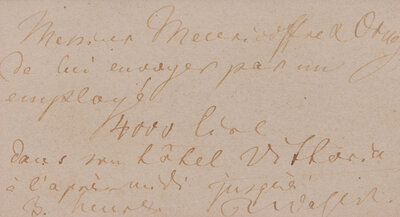 Messieur Meuricoffre &
de lui envoyer par un
employé
4000 lire
dans son hôtel Vittoria
à l'après midi jusqu'à
3 heures R Wagner